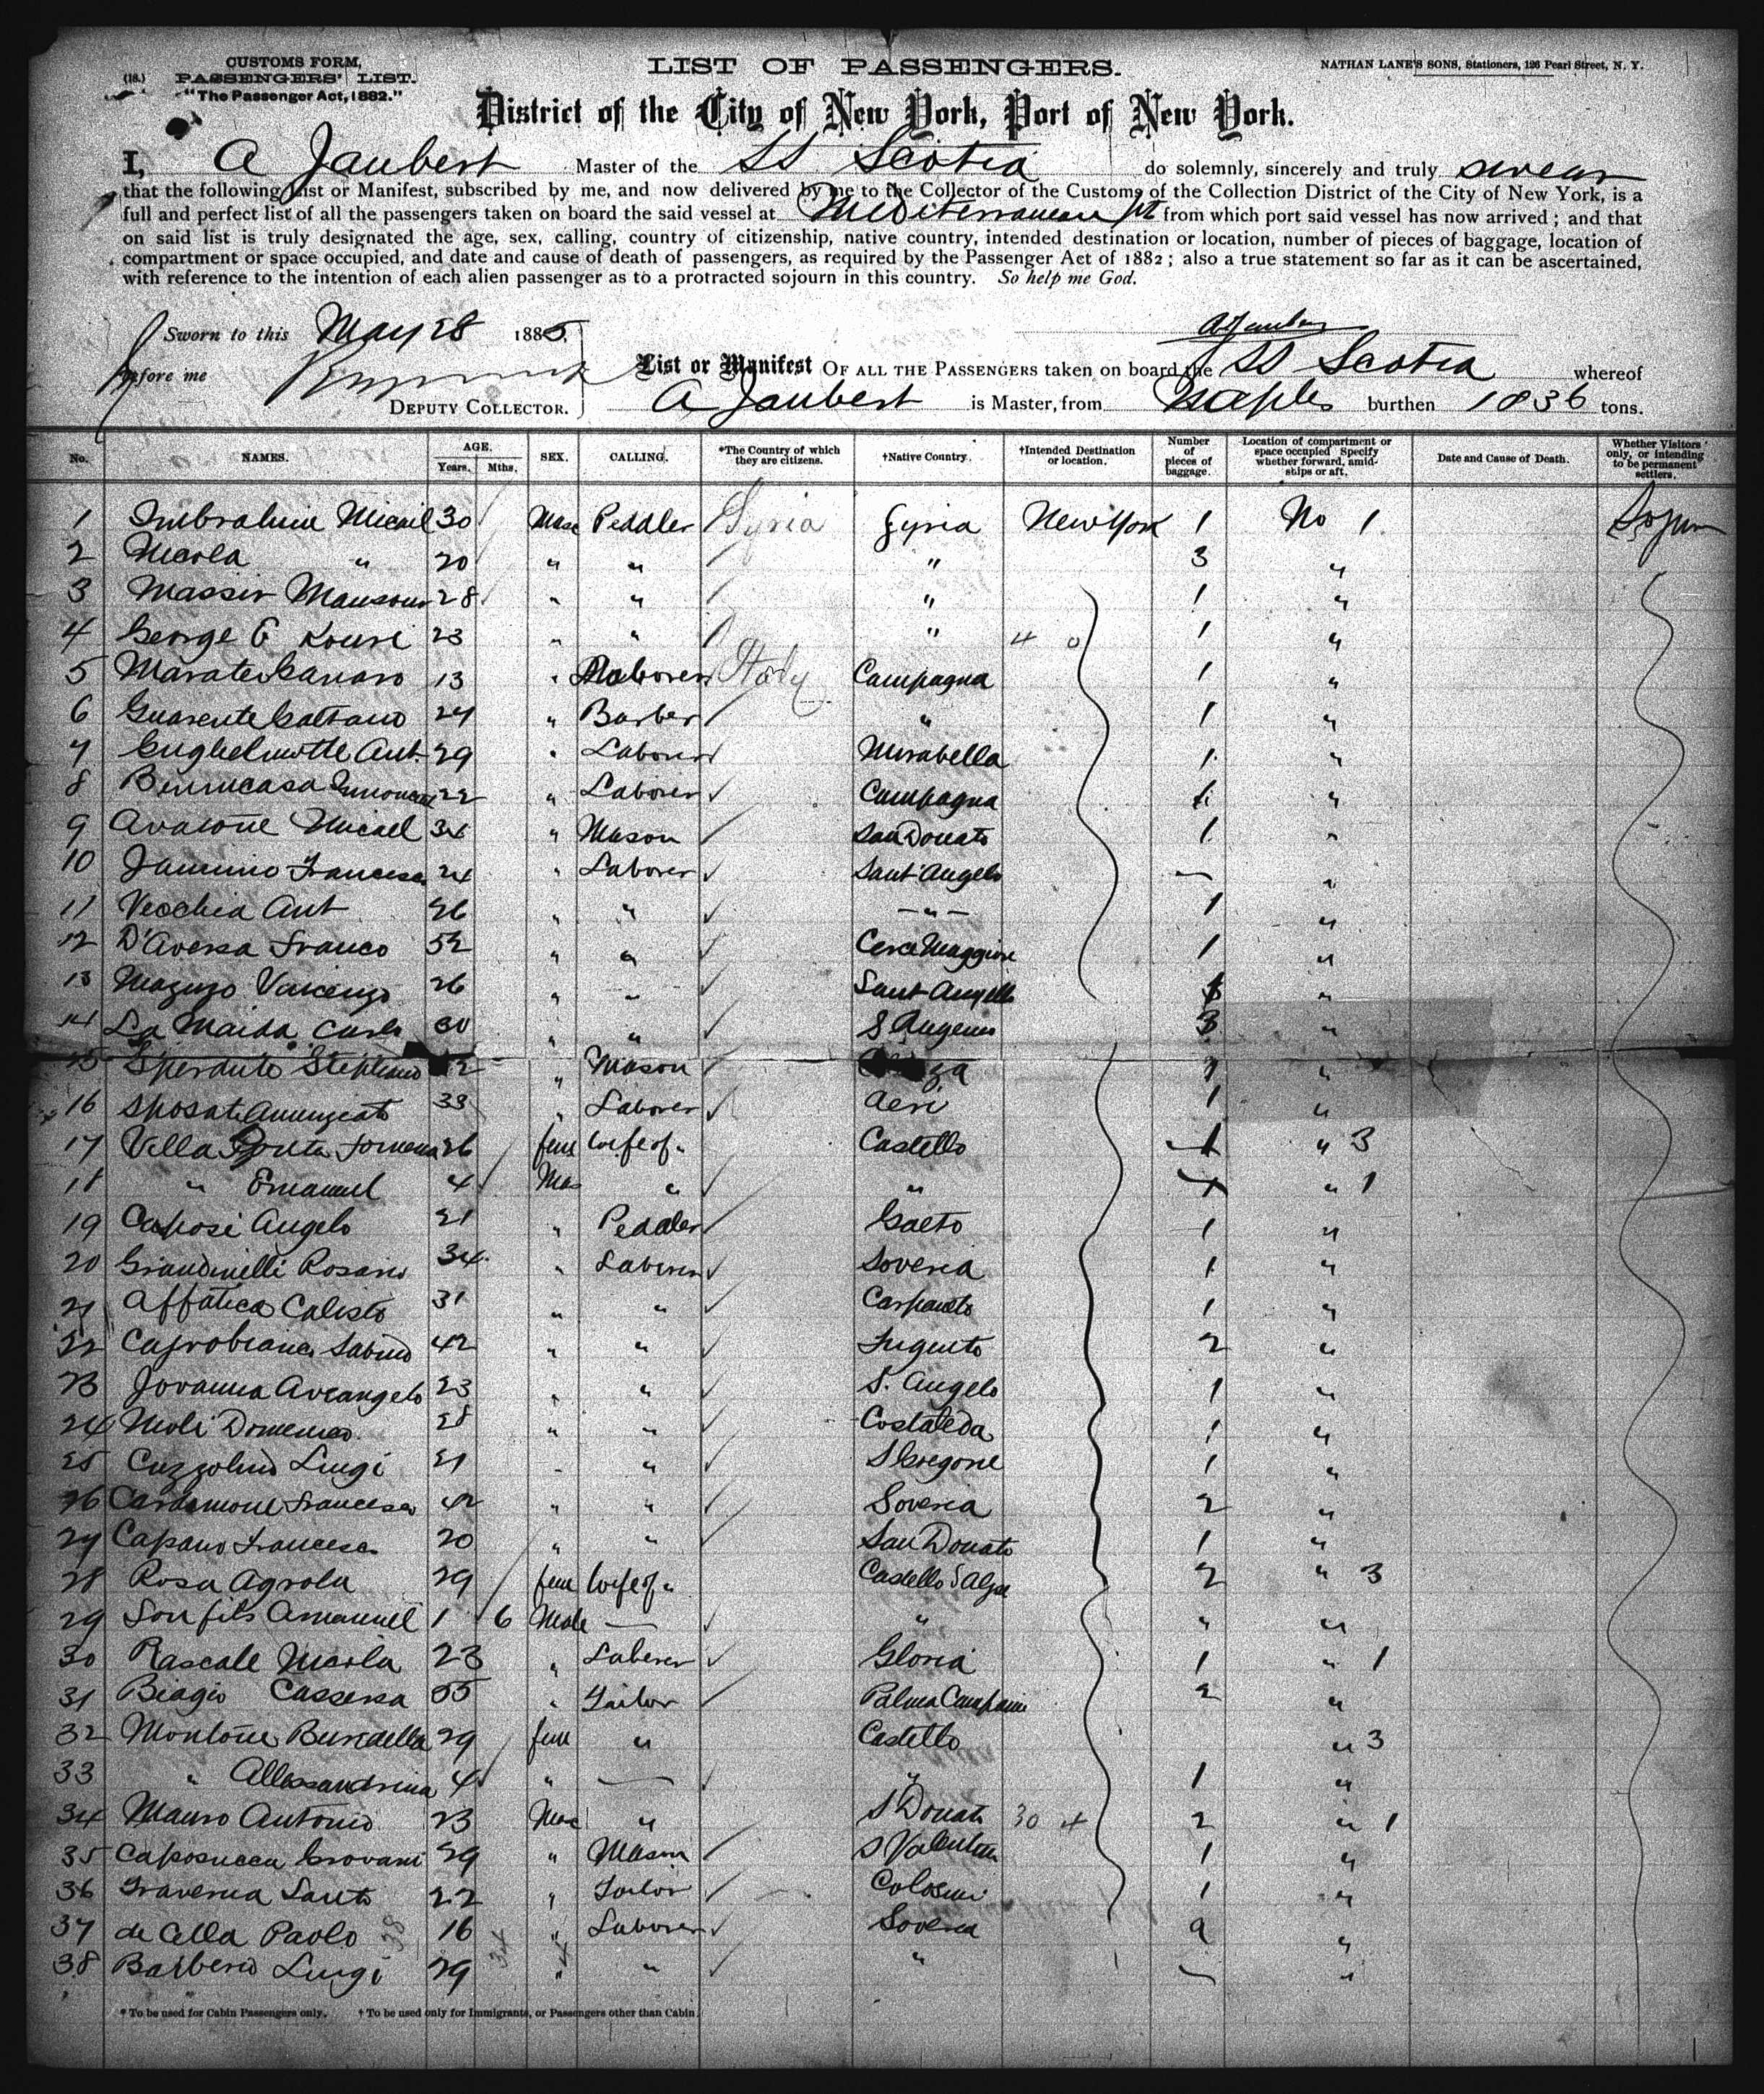 (18.)
CUSTOMS FORM,
PASSENGERS' LIST.
"The Passenger Act, 1882."
LIST OF PASSENGERS.
NATHAN LANE'S SONS, Stationers, 126 Pearl Street, N. Y.
District of the City of New York, Port of New York.
I, A Jaubert Master of the SS Scotia do solemnly, sincerely and truly swear
that the following List or Manifest, subscribed by me, and now delivered by me to the Collector of the Customs of the Collection District of the City of New York, is a
full and perfect list of all the passengers taken on board the said vessel at Mediterranean pt from which port said vessel has now arrived; and that
on said list is truly designated the age, sex, calling, country of citizenship, native country, intended destination or location, number of pieces of baggage, location of
compartment or space occupied, and date and cause of death of passengers, as required by the Passenger Act of 1882; also a true statement so far as it can be ascertained,
with reference to the intention of each alien passenger as to a protracted sojourn in this country. So help me God.
Sworn to this May 28 1885.
A Jaubert
before me
DEPUTY COLLECTOR.
List or Manifest OF ALL THE PASSENGERS taken on board the SS Scotia whereof
A Jaubert is Master, from Naples burthen 1836 tons.
No. NAMES. AGE. Years. Mths. SEX. CALLING. *The Country of which they are citizens. †Native Country. †Intended Destination or location. Number of pieces of baggage. Location of compartment or space occupied Specify whether forward, amidships or aft. Date and Cause of Death. Whether Visitors only, or intending to be permanent settlers.
1 Imbrahim Micail 30 Masc Peddler Syria Syria New York 1 No 1
2 Nicola " 20 " " " 3 "
3 Massir Mansour 28 " " " 1 "
4 George G Kouri 23 " " " 4 0 1 "
5 13 " Laborer Italy Campagna 1 "
6 Guarente Gaetano 24 " Barber " 1 "
7 Guglielmotte Ant. 29 " Laborer Mirabella 1 "
8 22 " Laborer Campagna 1 "
9 Avalone Micael 34 " Mason San Donato 1 "
10 Francesco 24 " Laborer Sant' Angelo — "
11 Vecchia Ant 26 " " — " — 1 "
12 D'Aversa Franco 52 " " Cerce Maggiore 1 "
13 26 " " Sant Angelo "
14 La Maida Carlo 30 " " 3 "
15 Sperduto Stephano " Mason 1 "
16 Sposato Annunziato 33 " Laborer Aeri 1 "
17 Villa 26 fem Wife of " Castello 1 " 3
18 " Emanuel 4 Mas " " 1 " 1
19 Caposi Angelo 21 " Peddler Gaeto 1 "
20 Grandinelli Rosario 34 " Laborer Soveria 1 "
21 Affatica Calisto 31 " " 1 "
22 Caprobianco Sabino 42 " " 2 "
23 Jovanna Arcangelo 23 " " S. Angelo 1 "
24 Moli Domenico 28 " " 1 "
25 Cuzzolino Luigi 21 " " S Gregorie 1 "
26 Cardamone Francesco 42 " " Soveria 2 "
27 Capano Francesco 20 " " San Donato 1 "
28 Rosa Agrola 29 fem Wife of " Castello 2 " 3
29 Son fils Amanuel 1 6 Male — " " "
30 Rascale Nicola 23 " Laborer Gloria 1 " 1
31 Biagio Cassesa 55 " Tailor Palma 2 "
32 Montone 29 fem " Castello " 3
33 " Allessandrina 4 " — " 1 "
34 Mauro Antonio 23 Masc " S Donato 30 4 2 " 1
35 Giovani 29 " Mason S Valentin 1 "
36 Traversa Santo 22 " Tailor Colosimi 1 "
37 de Cella Paolo 38 16 34 " 4 Laborer Soveria "
38 Barberio Luigi 29 " " " — "
* To be used for Cabin Passengers only. † To be used only for Immigrants, or Passengers other than Cabin.